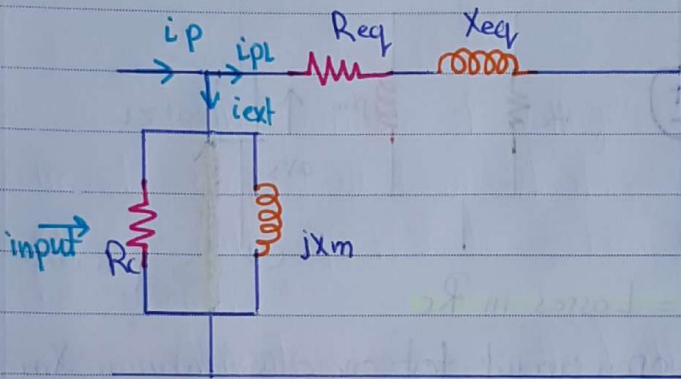 ip
ipl
Req
Xeq
iext
input
Rc
jxm